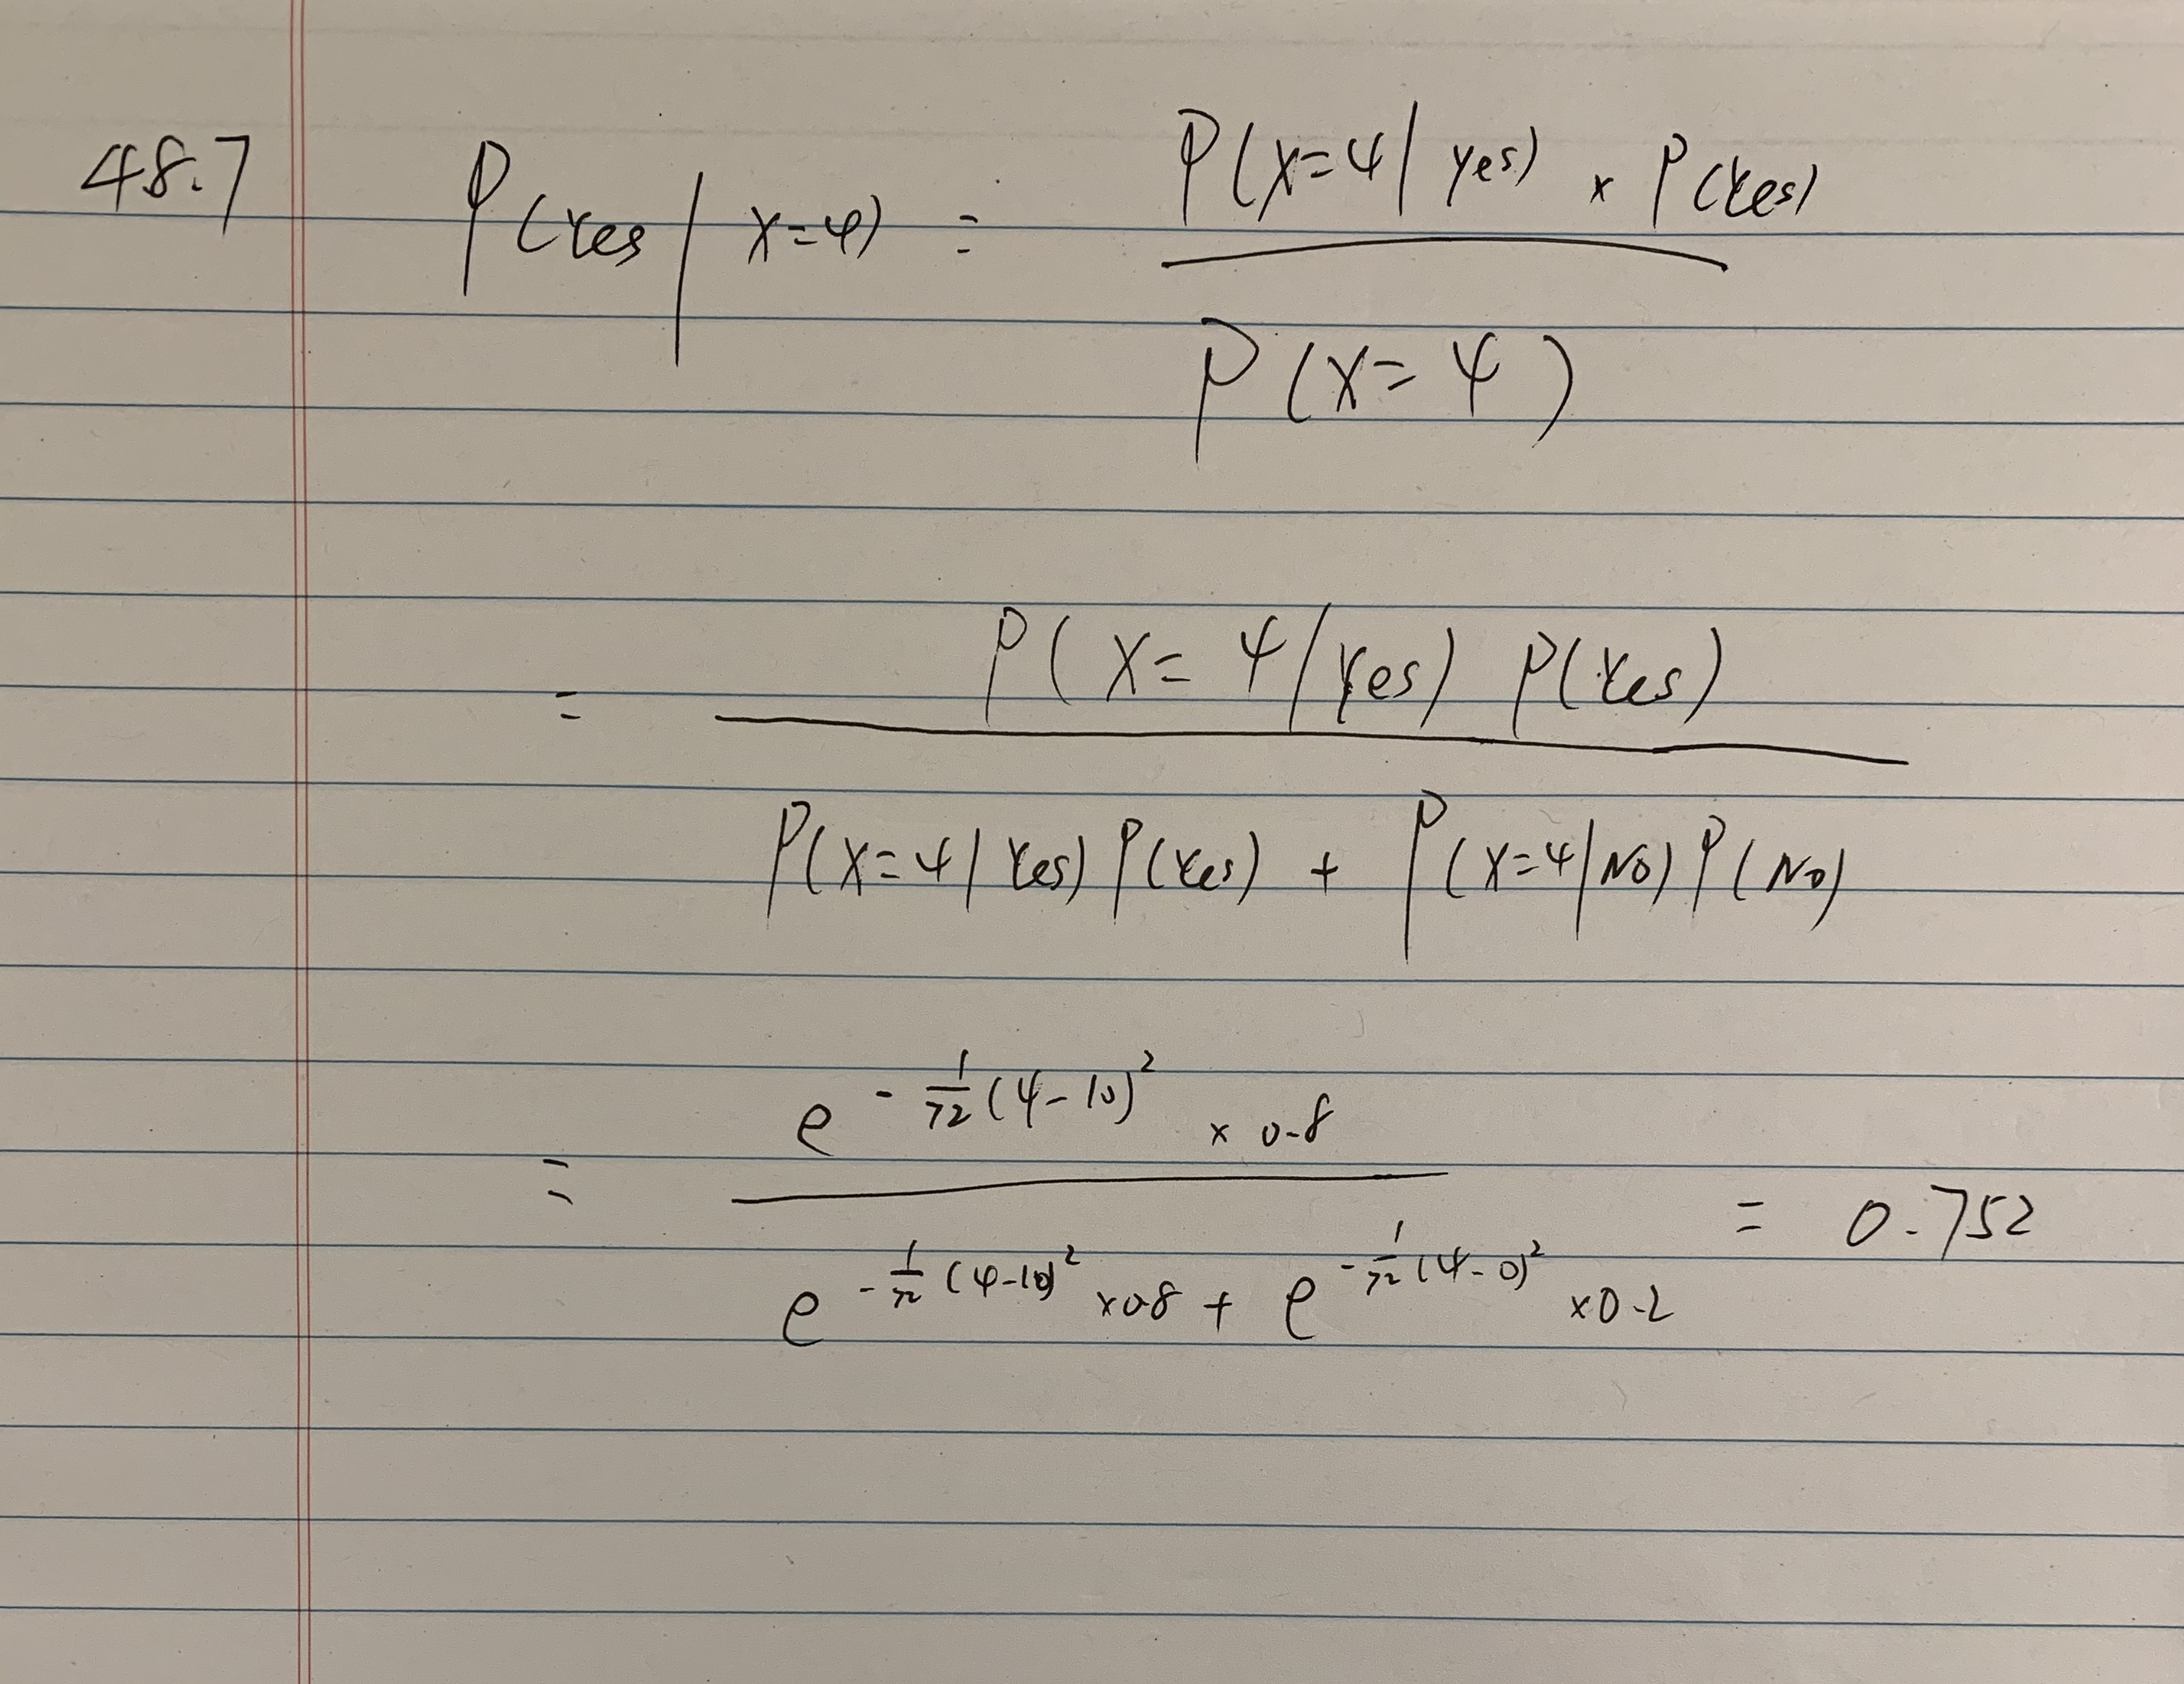 48.7 P(Yes | X=4) = P(X=4 | Yes) × P(Yes)
P(X=4)
= P(X=4 | Yes) P(Yes)
P(X=4 | Yes) P(Yes) + P(X=4 | No) P(No)
= e^{-1/72 (4-10)^2} × 0.8
e^{-1/72 (4-10)^2} × 0.8 + e^{-1/72 (4-0)^2} × 0.2 = 0.752